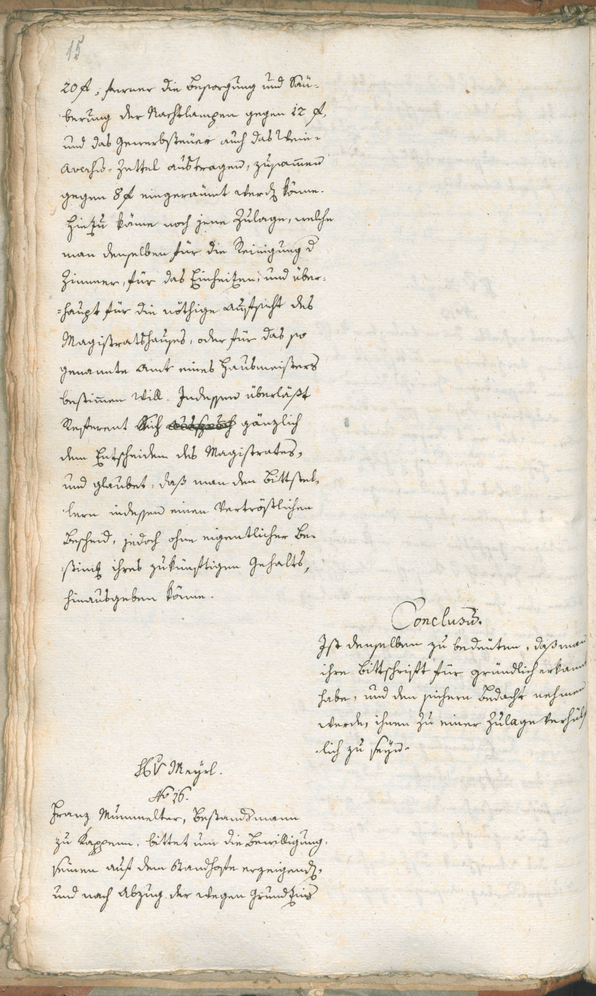 15
20 f, ferner die Besorgung und Säu-
berung der Nachtlampen gegen 12 f,
und das Gewerbsteuer auch das Wein-
Aviso-Zettel austragen, zusammen
gegen 8 f eingeraumt werden könne.
Hinzu käme noch jene Zulage, welche
man denselben für die Reinigung d
Zimmer, für das Einheitzen, und über-
haupt für die nöthige Aufsicht des
Magistratshauses, oder für das so
genannte Amt eines Hausmeisters
bestimmen will. Indessen überläßt
Referent sich gänzlich
dem Entscheiden des Magistrates,
und glaubet, daß man den Bittstel-
lern indessen einen vertröstlichen
Bescheid, jedoch ohne eigentlicher Be-
stimg ihres zukünftigen Gehalts,
hinausgeben könne.
Conclusum.
Ist denselben zu bedeuten, daß man
ihre Bittschrift für gründlich erkannt
habe, und den sichern Bedacht nehmen
werde, ihnen zu einer Zulage verhülf
lich zu seyn.
Meyrl.
No 16.
Franz Mummelter, Bestandsmann
zu Kappenn, bittet um die Bewilligung,
seinen auf dem Standhofe erzeigenden,
und nach Abzug der wegen Grundzins